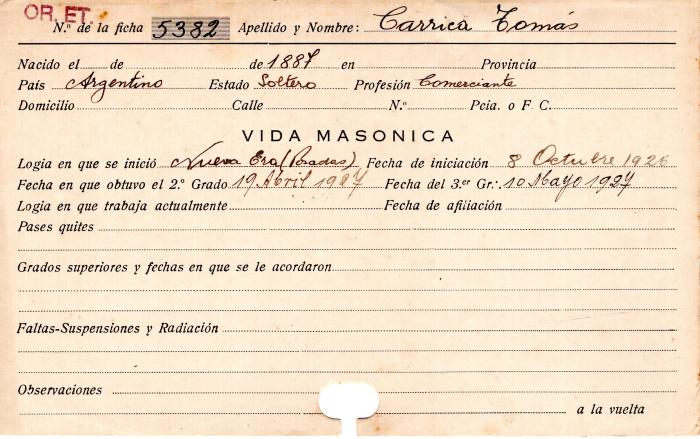 OR. ET.
N.º de la ficha 5382 Apellido y Nombre: Carrica Tomás
Nacido el de de 1887 en Provincia
País Argentino Estado Soltero Profesión Comerciante
Domicilio Calle N.º Pcia. o F C.
VIDA MASONICA
Logia en que se inició Nueva Era (Posadas) Fecha de iniciación 8 Octubre 1926
Fecha en que obtuvo el 2.º Grado 19 Abril 1927 Fecha del 3.er Gr.'. 10 Mayo 1927
Logia en que trabaja actualmente Fecha de afiliación
Pases quites
Grados superiores y fechas en que se le acordaron
Faltas-Suspensiones y Radiación
Observaciones
a la vuelta